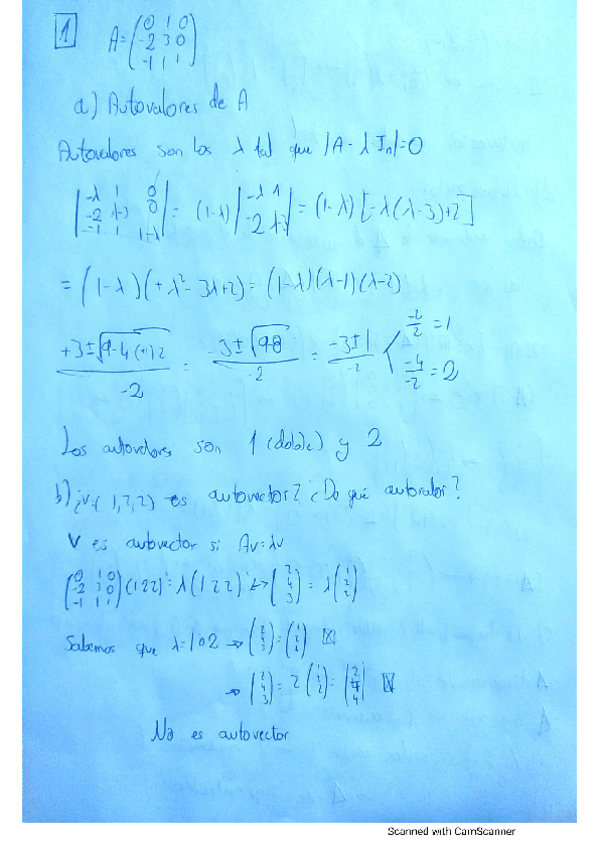 1 A=(0 1 0
-2 3 0
-1 1 1)
a) Autovalores de A
Autovalores son los λ tal que |A-λIn|=0
|-λ 1 0
-2 λ-3 0
-1 1 1-λ| = (1-λ) |-λ 1
-2 λ-3| = (1-λ) [-λ(λ-3)+2]
= (1-λ)(+λ²-3λ+2) = (1-λ)(λ-1)(λ-2)
+3±√9-4(+1)2 / -2 = -3±√9-8 / -2 = -3±1 / -2 < -2/2 = 1
-4/-2 = 2
Los autovalores son 1 (doble) y 2
b) ¿v=(1,2,2) es autovector? ¿De qué autovalor?
V es autovector si Av=λv
(0 1 0
-2 3 0
-1 1 1)(1 2 2) = λ(1 2 2) ↔ (2 4 3) = λ(1 2 2)
Sabemos que λ=1 o 2 → (2 4 3) = (1 2 2)
→ (2 4 3) = 2(1 2 2) = (2 4 4)
No es autovector
Scanned with CamScanner